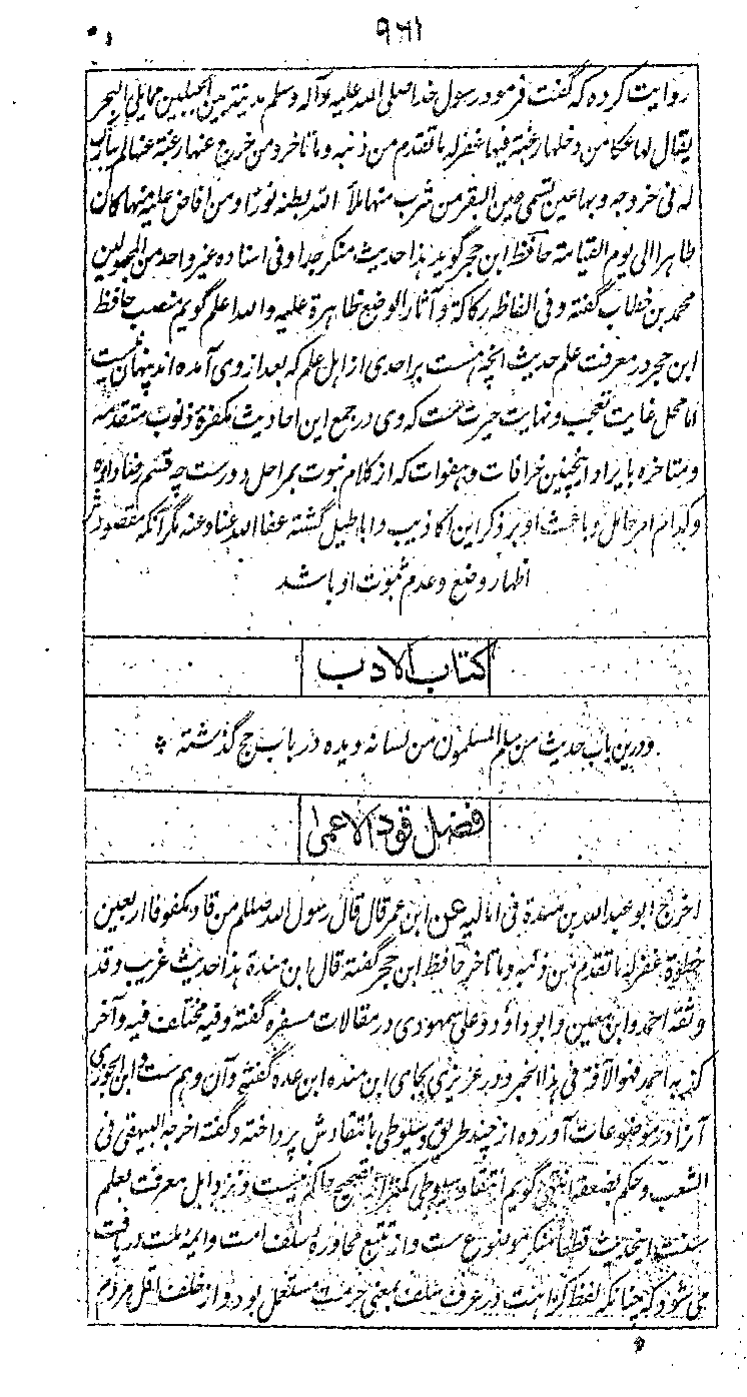 ۹۶۱
روایت کرده که گفت فرمود رسول خدا صلی الله علیه وآله وسلم مدینة بین الجبلین مما یلی البحر
یقال لها عکا من دخلها رغبة فیها غفر له ما تقدم من ذنبه وما تاخر ومن خرج عنها رغبة عنها لم یبارک
له فی خروجه وبها عین تسمی عین البقر من شرب منها ملأ الله بطنه نورًا ومن افاض علیه منها کان
طاهرا الی یوم القیامة حافظ ابن حجر گوید هذا حدیث منکر جدا وفی اسناده غیر واحد من المجهولین
محمد بن خطاب گفته وفی الفاظه رکاکة وآثار الوضع ظاهرة علیه والله اعلم گویم منصب حافظ
ابن حجر در معرفت علم حدیث انچه هست بر احدی از اهل علم که بعد از وی آمده اند پنهان نیست
اما محل غایت تعجب و نهایت حیرت ست که وی در جمع این احادیث مکفرۀ ذنوب متقدمه
و متاخره بایراد اینچنین خرافات و هفوات که از کلام نبوت بمراحل دورست چه قسم رضا داده
و کدام امر حامل و باعث او بر ذکر این اکاذیب و اباطیل گشته عفا الله عنا و عنه مگر آنکه مقصودش
اظهار وضع و عدم ثبوت او باشد
کتاب الادب
ودرین باب حدیث من سلم المسلمون من لسانه ویده در باب حج گذشته
فضل قود الاعمیٰ
اخرج ابو عبد الله بن مندة فی امالیه عن ابن عمر قال قال رسول الله صللم من قاد مکفوفا اربعین
خطوة غفر له ما تقدم من ذنبه وما تاخر حافظ ابن حجر گفته قال ابن مندة هذا حدیث غریب وقد
وثقه احمد وابن معین وابو داؤد وعلی سمهودی در مقالات مسفره گفته وفیه مختلف فیه وآخر
کذبه احمد فهو الآفة فی هذا الخبر ودر عزیزی بجای ابن منده ابن عده گفته وآن وهم ست وابن الجوزی
آنرا در موضوعات آورده از چند طریق وسیوطی بانتقادش پرداخته وگفته اخرجه البیهقی فی
الشعب وحکم بضعفه انتهی گویم انتقاد سیوطی کمتر از تصحیح حاکم نیست ونزد اهل معرفت بعلم
سنت اینحدیث قطعاً منکر موضوع ست واز تتبع محاورۀ سلف امت وائمۀ ملت دریافت
می شود که چنانکه لفظ کراهت در عرف سلف بمعنی حرمت مستعمل بود واز خلف اقل مردم